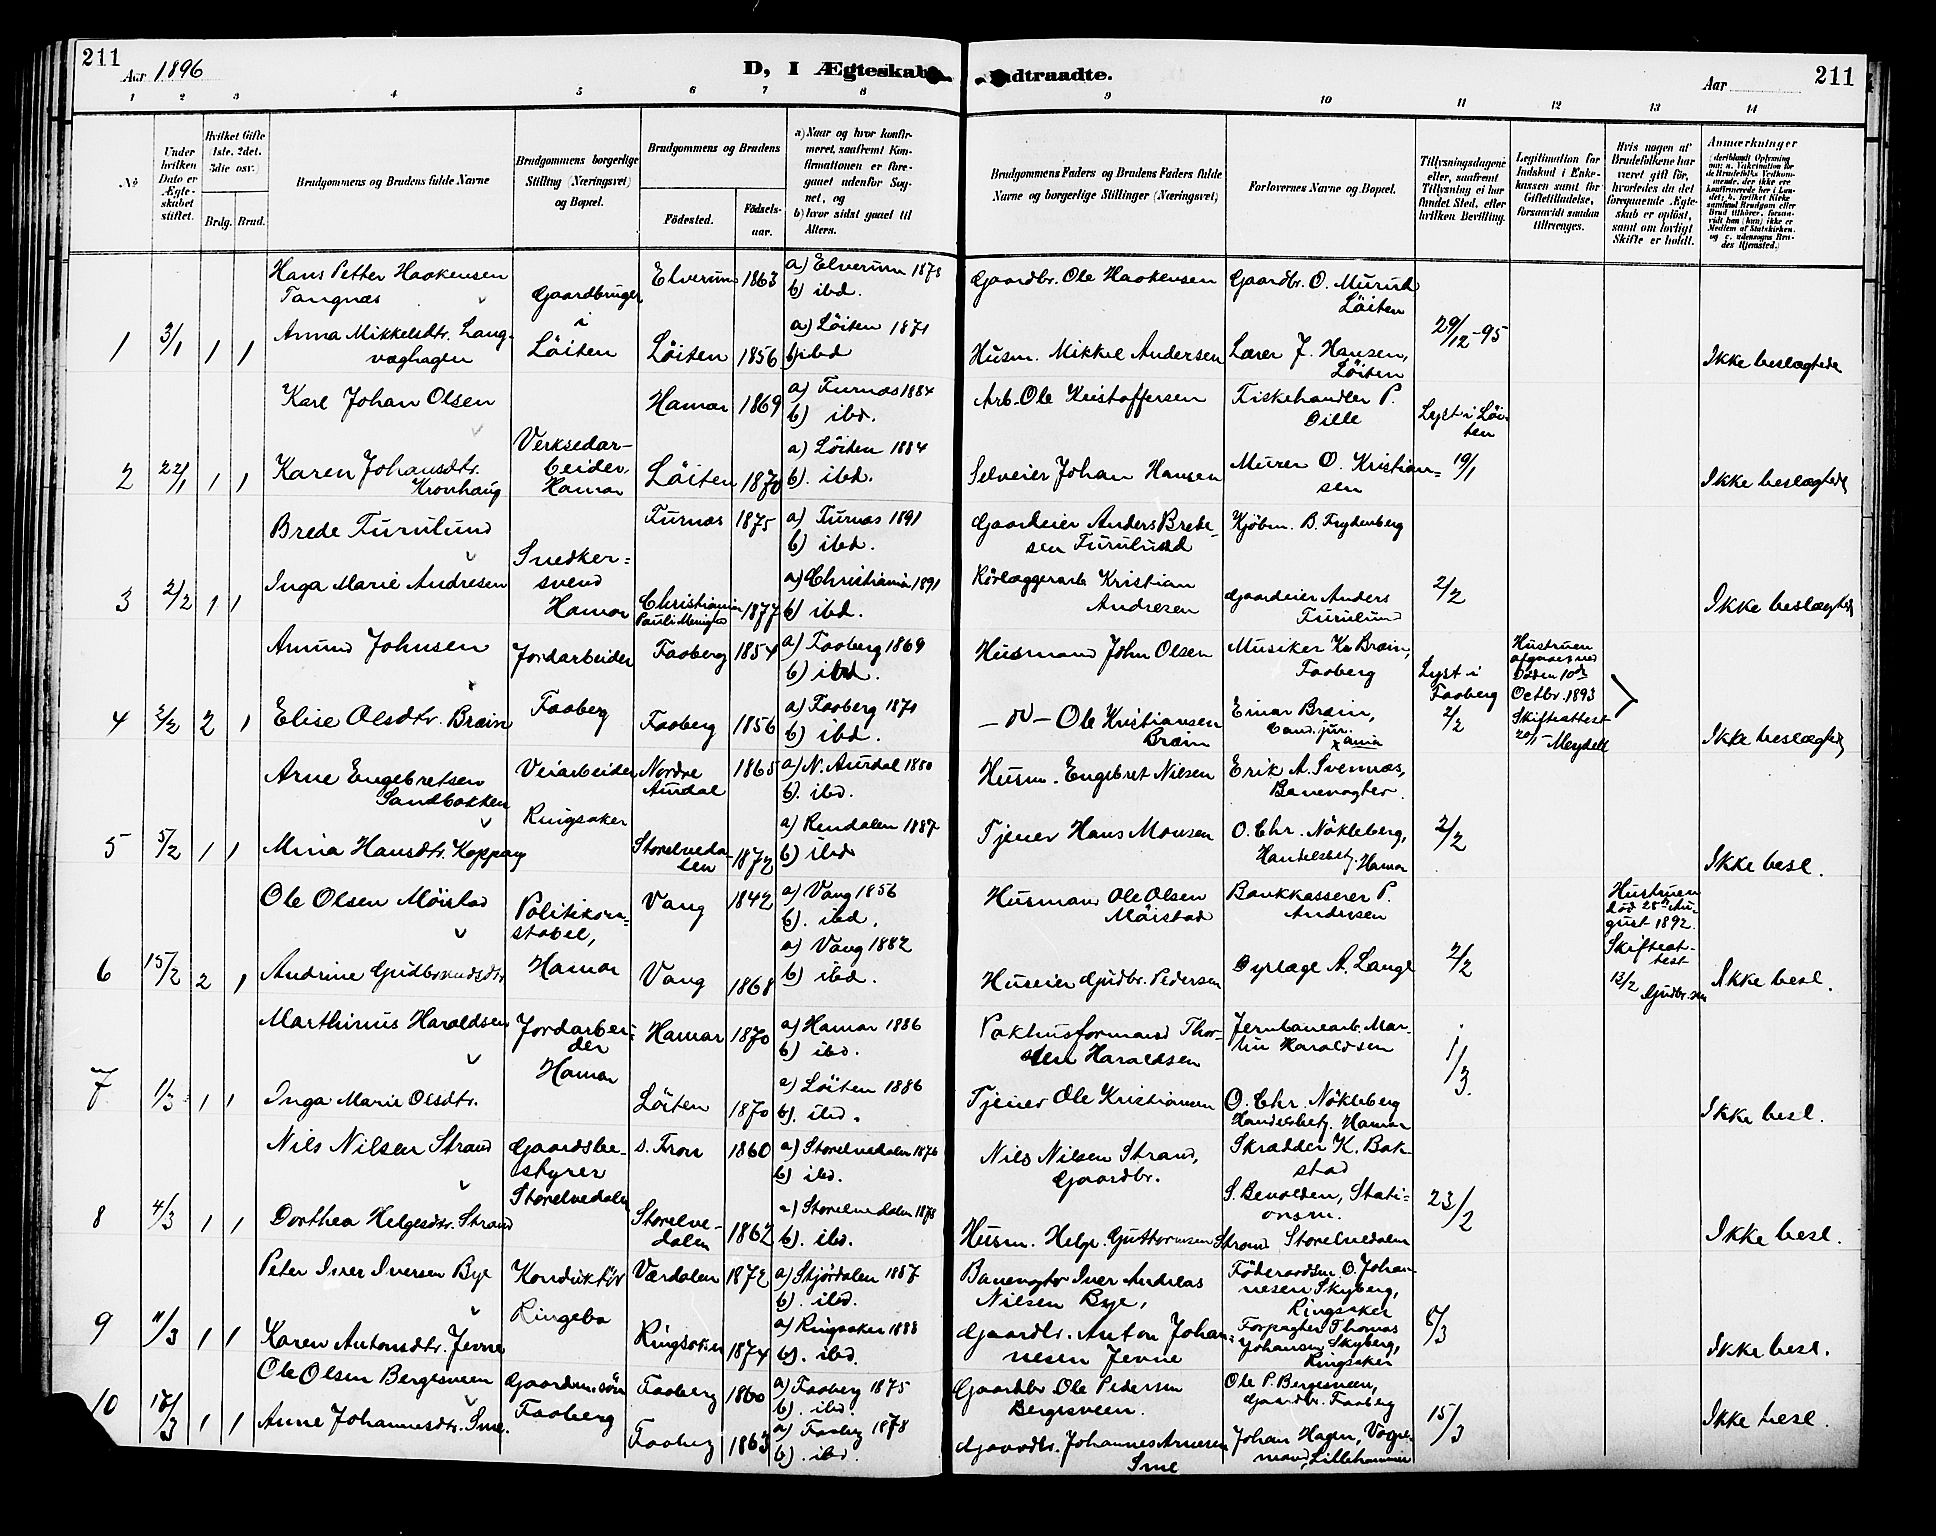 211
Aar 1896
D, I Ægteskab Indtraadte.
Aar
211
1 2 3 4 5 6 7 8 9 10 11 12 13 14
No
Under hvilken Dato er Ægteskabet stiftet.
Hvilket Gifte 1ste, 2det, 3die osv.)
Brdg. Brud.
Brudgommens og Brudens fulde Navne
Brudgommens borgerlige Stilling (Næringsvei) og Bopæl.
Brudgommens og Brudens
Fødested.
Fødselsaar.
a) Naar og hvor konfirmeret, saafremt Konfirmationen er foregaaet udenfor Sognet, og
b) hvor sidst gaaet til Alters.
Brudgommens Faders og Brudens Faders fulde Navne og borgerlige Stillinger (Næringsvei)
Forlovernes Navne og Bopæl.
Tillysningsdagene eller, saafremt Tillysning ei har fundet Sted, efter hvilken Bevilling.
Legitimation for Indskud i Enkekassen samt for Giftetilladelse, forsaavidt saadan tiltrænges.
Hvis nogen af Brudefolkene har været gift før, hvorledes da det foregaaende Ægteskab er opløst, samt om lovligt Skifte er holdt.
Anmærkninger
1 3/1 1 1
Hans Petter Haakensen Tangnæs
Gaardbruger i Löiten
Elverum 1863
a) Elverum 1878
b) ibd.
Gaardbr. Ole Haakensen
Gaardbr. O. Murud Löiten
Anna Mikkelsdtr. Langvæghagen
Löiten 1856
a) Löiten 1871
b) ibd
Husm. Mikkel Andersen
Lærer J. Hansen, Löiten
29/12-95
Ikke beslægtede
2 22/1 1 1
Karl Johan Olsen
Verksedarbeider, Hamar
Hamar 1869
a) Furnæs 1884
b) ibd.
Arb. Ole Kristoffersen
Fiskehandler P. Dille
Lyst i Löiten 19/1
Karen Johansdtr. Kronhaug
Löiten 1870
a) Löiten 1884
b). ibd.
Selveier Johan Hansen
Murer O. Kristiansen
Ikke beslægtede
3 2/2 1 1
Brede Furulund
Snedkersvend Hamar
Furnæs 1875
a) Furnæs 1891
b) ibd.
Gaardeier Anders Bredesen Furulund
Kjöbm. B. Frydenberg
Inga Marie Andresen
Christiania Pauli Menighed 1877
a) Christiania 1891
b) ibd.
Rörlæggerarb Kristian Andresen
Gaardeier Anders Furulund
2/2
Ikke beslægtede
4 3/2 2 1
Amund Johnsen
Jordarbeider Faaberg
Faaberg 1854
a) Faaberg 1869
b) ibd.
Husmand John Olsen
Musiker K. Bræin, Faaberg
Lyst i Faaberg 2/2
Hustruen afgaaet ved Døden 10de Octbr. 1893
Skifteattest 20/1 Meydell
Elise Olsdtr. Bræin
Faaberg 1856
a) Faaberg 1871
b) ibd.
- do - Ole Kristiansen Bræin
Einar Bræin, Cand. jur. Xania
Ikke beslægtede
5 5/2 1 1
Arne Engebretsen Sandbakken
Veiarbeider Ringsaker
Nordre Aurdal 1865
a) N. Aurdal 1880
b). ibd.
Husm. Engebret Nilsen
Erik A. Svennæs, Banevogter
Mina Hansdtr. Koppang
Storelvedalen 1872
a) Rendalen 1887
b) ibd
Tjener Hans Monsen
O. Chr. Nökleberg, Handelsbetj. Hamar
2/2
Ikke besl.
6 15/2 2 1
Ole Olsen Möistad
Politikonstabel, Hamar
Vang 1842
a) Vang 1856
b). ibd.
Husmand Ole Olsen Möistad
Bankkasserer P. Andersen
Hustruen død 28de August 1892.
Skifteattest 13/2 Gudbr.sen
Andrine Gudbrandsdtr.
Vang 1868
a) Vang 1882
b) ibd.
Huseier Gudbr. Pedersen
Dyrlæge A. Lange
2/2
Ikke besl.
7 1/3 1 1
Marthinius Haraldsen
Jordarbeider Hamar
Hamar 1870
a) Hamar 1886
b) ibd.
Pakhusformand Thorsten Haraldsen
Jernbanearb. Martin Haraldsen
1/3.
Inga Marie Olsdtr.
Löiten 1870
a) Löiten 1886
b). ibd.
Tjener Ole Kristiansen
O. Chr. Nökleberg Handelsbetj. Hamar
Ikke besl.
8 4/3 1 1
Nils Nilsen Strand
Gaardsbestyrer Storelvedalen
S. Fron 1860
a) Storelvedalen 1876
b) ibd.
Nils Nilsen Strand, Gaardbr.
Skrædder K. Bakstad
Dorthea Helgesdtr. Strand
Storelvedalen 1862
a) Storelvedalen 1878
b). ibd.
Husm. Helge Guttormsen Strand
S. Benolden, Stationsm. Storelvedalen
23/2
Ikke besl.
9 11/3 1 1
Peter Iver Iversen Bye
Konduktör Ringebo
Værdalen 1872
a) Stjördalen 1887
b). ibd.
Banevogter Iver Andreas Nilsen Bye,
Föderaadsm. O. Johannesen Skyberg, Ringsaker
Karen Antonsdtr. Jevne
Ringsaker 1874
a) Ringsaker 1888
b). ibd.
Gaardbr. Anton Johannesen Jevne
Forpagter Thomas Johansen Skyberg, Ringsaker
8/3
Ikke besl.
10 18/3 1 1
Ole Olsen Bergesveen
Gaardm.sön Faaberg
Faaberg 1860
a) Faaberg 1875
b). ibd.
Gaardbr Ole Pedersen Bergesveen.
Ole P. Bergesveen, Gaardbr. Faaberg
Anne Johannesdtr. Sme.
Faaberg 1863
a) Faaberg 1878
b). ibd.
Gaardbr. Johannes Arnesen Sme
Johan Hagen, Vognmand, Lillehammer
15/3
Ikke besl.